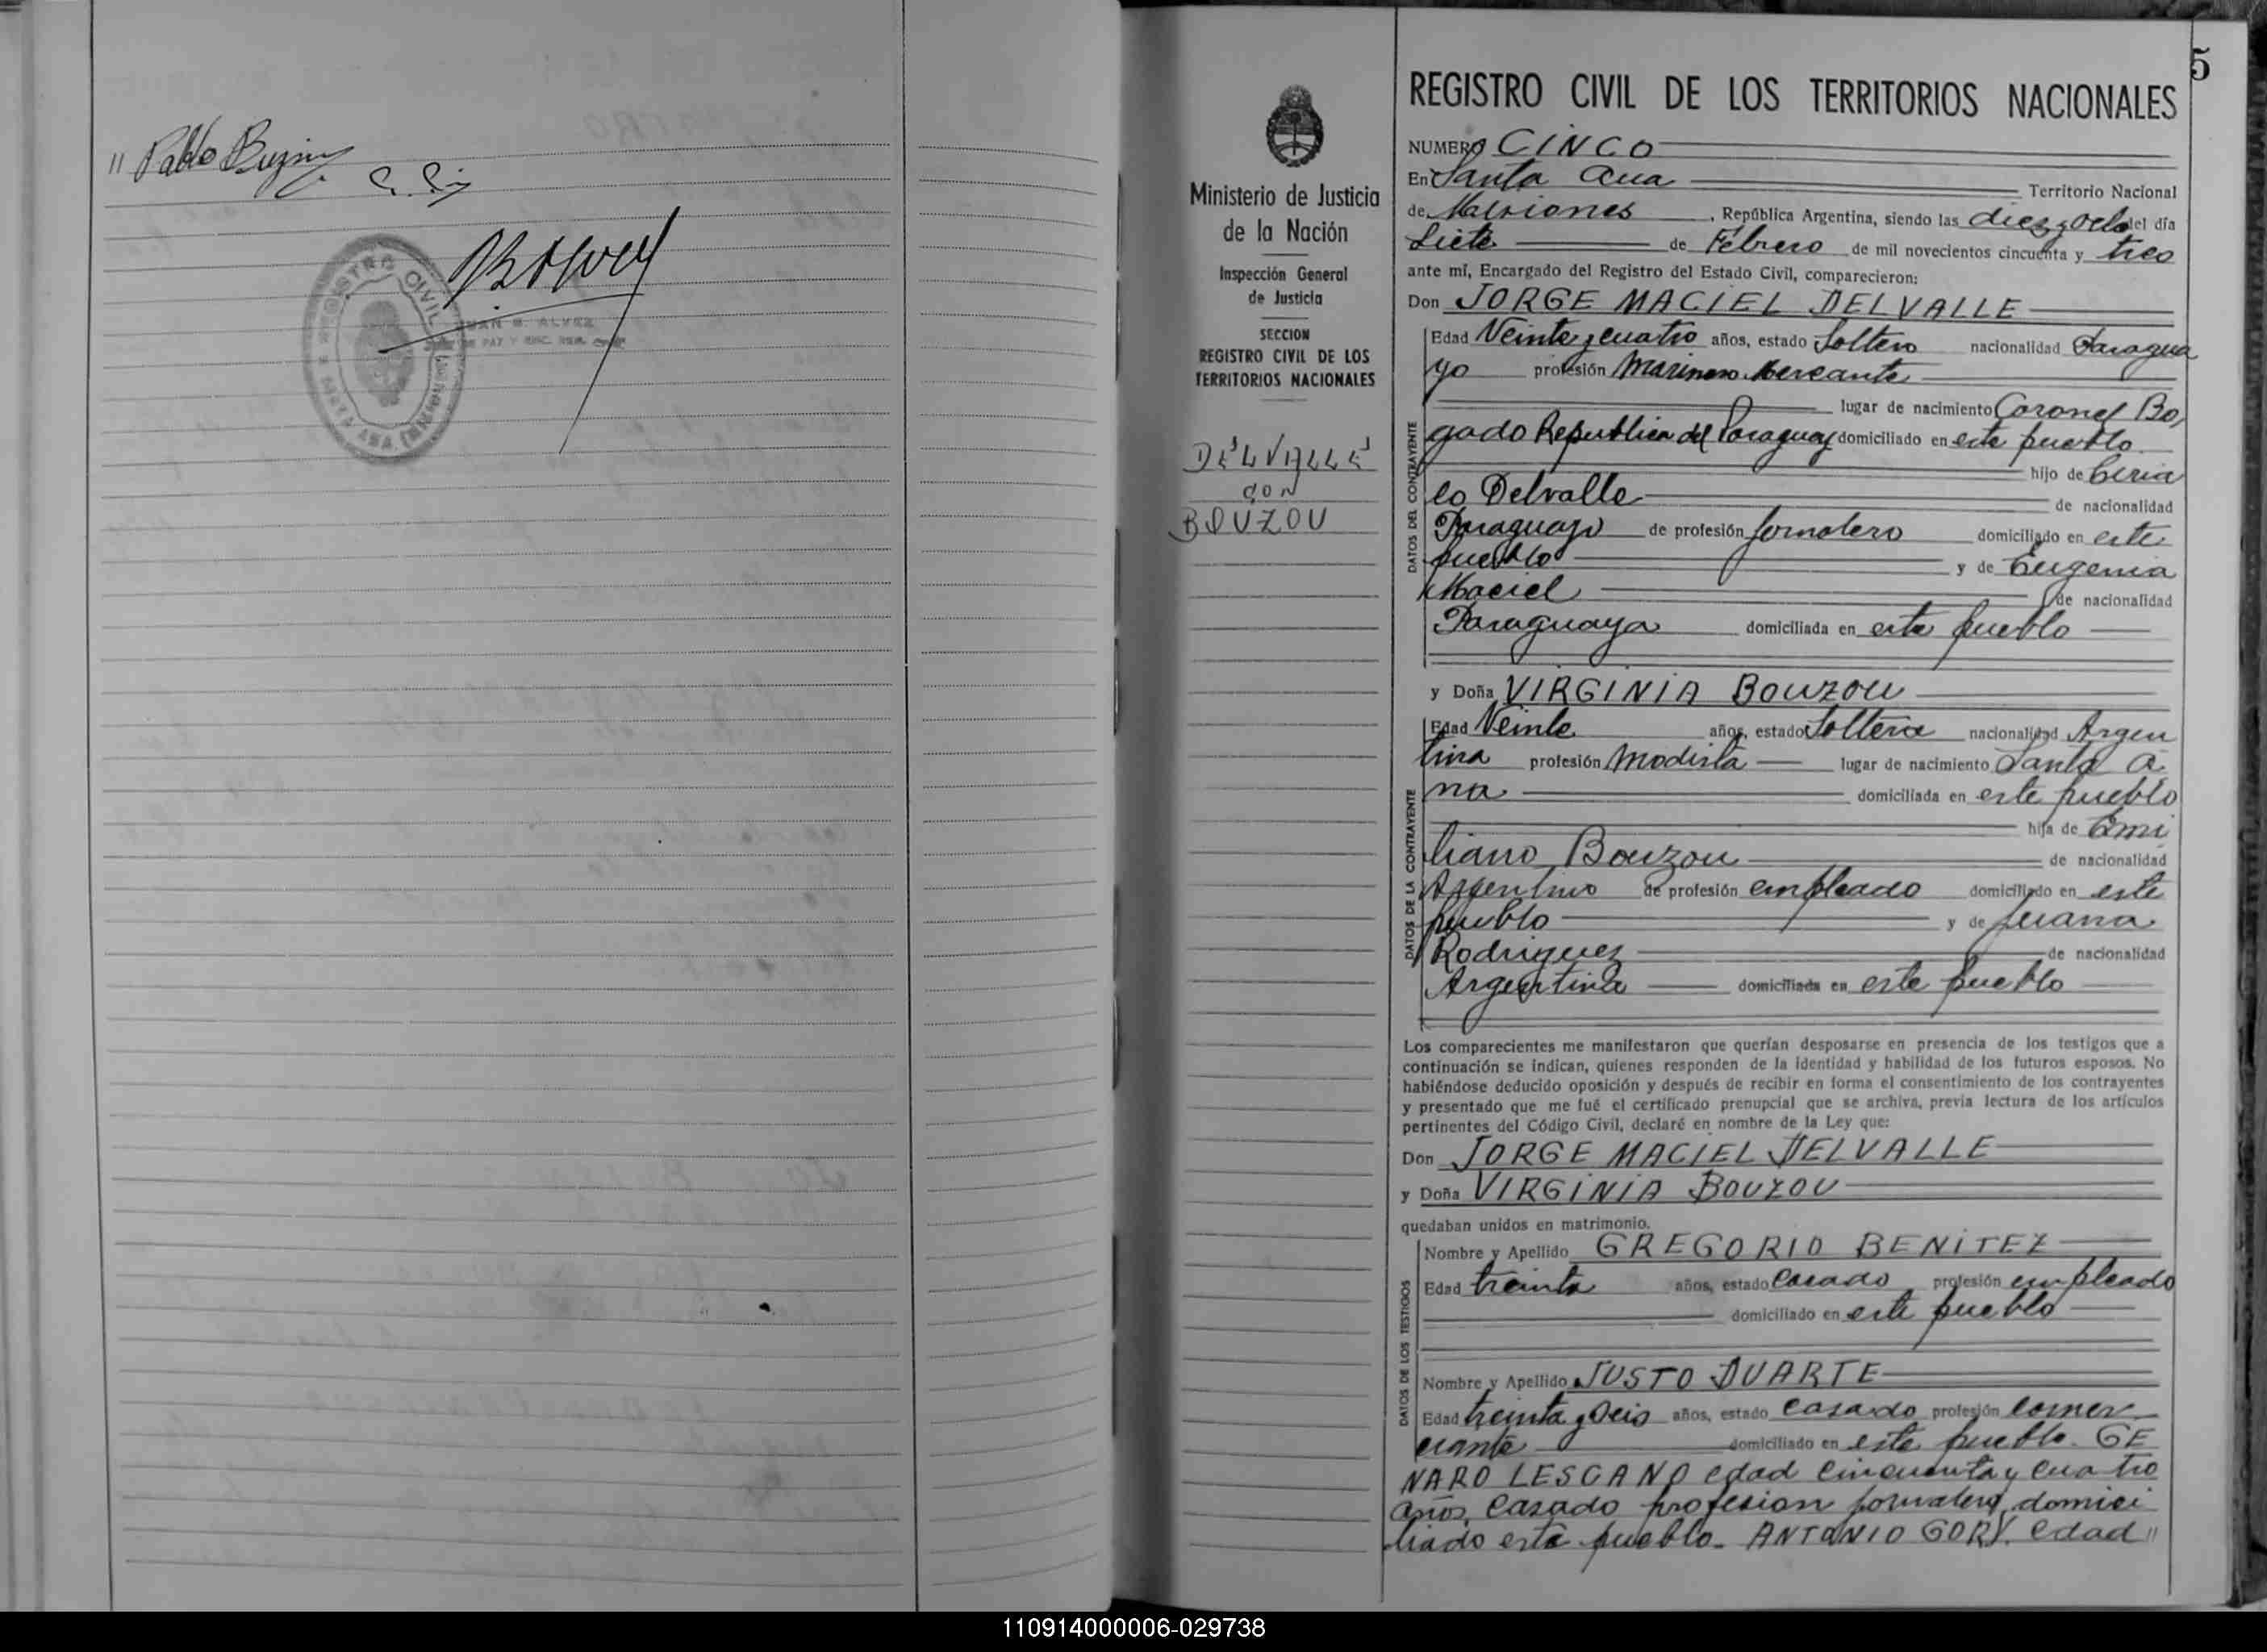 " Pablo
REGISTRO CIVIL
SANTA ANA (MNES)
JUAN B. ALVEZ
JUEZ DE PAZ Y ENC. REG. CIVIL
5
Ministerio de Justicia
de la Nación
Inspección General
de Justicia
SECCION
REGISTRO CIVIL DE LOS
TERRITORIOS NACIONALES
DELVALLE
CON
BOUZOU
REGISTRO CIVIL DE LOS TERRITORIOS NACIONALES
NUMERO CINCO
En Santa Ana Territorio Nacional
de Misiones, República Argentina, siendo las diez y ocho del día
siete de Febrero de mil novecientos cincuenta y tres
ante mí, Encargado del Registro del Estado Civil, comparecieron:
Don JORGE MACIEL DELVALLE
Edad Veinte y cuatro años, estado Soltero nacionalidad Paragua
yo profesión Marinero Mercante
lugar de nacimiento Coronel Bo,
gado Republica del Paraguay domiciliado en este pueblo
hijo de Ciria
co Delvalle de nacionalidad
Paraguayo de profesión jornalero domiciliado en este
pueblo y de Eugenia
Maciel de nacionalidad
Paraguaya domiciliada en este pueblo
DATOS DEL CONTRAYENTE
y Doña VIRGINIA BOUZOU
Edad Veinte años, estado Soltera nacionalidad Argen
tina profesión Modista lugar de nacimiento Santa A
na domiciliada en este pueblo
hija de Emi
liano Bouzou de nacionalidad
Argentino de profesión empleado domiciliado en este
pueblo y de Juana
Rodriguez de nacionalidad
Argentina domiciliada en este pueblo
DATOS DE LA CONTRAYENTE
Los comparecientes me manifestaron que querían desposarse en presencia de los testigos que a
continuación se indican, quienes responden de la identidad y habilidad de los futuros esposos. No
habiéndose deducido oposición y después de recibir en forma el consentimiento de los contrayentes
y presentado que me fué el certificado prenupcial que se archiva, previa lectura de los artículos
pertinentes del Código Civil, declaré en nombre de la Ley que:
Don JORGE MACIEL DELVALLE
y Doña VIRGINIA BOUZOU
quedaban unidos en matrimonio.
Nombre y Apellido GREGORIO BENITEZ
Edad treinta años, estado casado profesión empleado
domiciliado en este pueblo
Nombre y Apellido JUSTO DUARTE
Edad treinta y seis años, estado casado profesión comer
ciante domiciliado en este pueblo. GE
NARO LESCANO edad cincuenta y cuatro
años, casado profesion jornalero, domici
liado este pueblo- ANTONIO GORY. edad "
DATOS DE LOS TESTIGOS
110914000006-029738